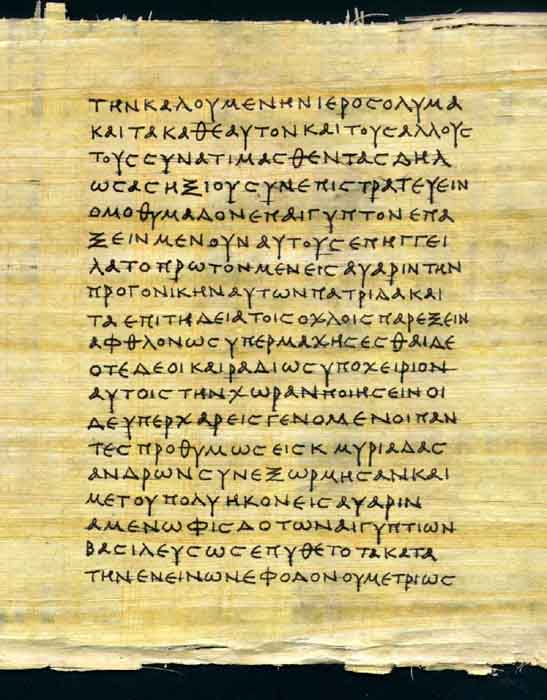 ΤΗΝΚΑΛΟΥΜΕΝΗΝΙΕΡΟϹΟΛΥΜΑ
ΚΑΙΤΑΚΑΘΕΑΥΤΟΝΚΑΙΤΟΥϹΑΛΛΟΥϹ
ΤΟΥϹϹΥΝΑΤΙΜΑϹΘΕΝΤΑϹΔΗΛ
ΩϹΑϹΗΞΙΟΥϹΥΝΕΠΙϹΤΡΑΤΕΥΕΙΝ
ΟΜΟΘΥΜΑΔΟΝΕΠΑΙΓΥΠΤΟΝΕΠΑ
ΞΕΙΝΜΕΝΟΥΝΑΥΤΟΥϹΕΠΗΓΓΕΙ
ΛΑΤΟΠΡΩΤΟΝΜΕΝΕΙϹΑΥΑΡΙΝΤΗΝ
ΠΡΟΓΟΝΙΚΗΝΑΥΤΩΝΠΑΤΡΙΔΑΚΑΙ
ΤΑΕΠΙΤΗΔΕΙΑΤΟΙϹΟΧΛΟΙϹΠΑΡΕΞΕΙΝ
ΑΦΘΛΟΝΩϹΥΠΕΡΜΑΧΗϹΕϹΘΑΙΔΕ
ΟΤΕΔΕΟΙΚΑΙΡΑΔΙΩϹΥΠΟΧΕΙΡΙΟΝ
ΑΥΤΟΙϹΤΗΝΧΩΡΑΝΠΟΙΗϹΕΙΝΟΙ
ΔΕΥΠΕΡΧΑΡΕΙϹΓΕΝΟΜΕΝΟΙΠΑΝ
ΤΕϹΠΡΟΘΥΜΩϹΕΙϹΚΜΥΡΙΑΔΑϹ
ΑΝΔΡΩΝϹΥΝΕΞΩΡΜΗϹΑΝΚΑΙ
ΜΕΤΟΥΠΟΛΥΗΚΟΝΕΙϹΑΥΑΡΙΝ
ΑΜΕΝΩΦΙϹΔΟΤΩΝΑΙΓΥΠΤΙΩΝ
ΒΑϹΙΛΕΥϹΩϹΕΠΥΘΕΤΟΤΑΚΑΤΑ
ΤΗΝΕΝΕΙΝΩΝΕΦΟΔΟΝΟΥΜΕΤΡΙΩϹ